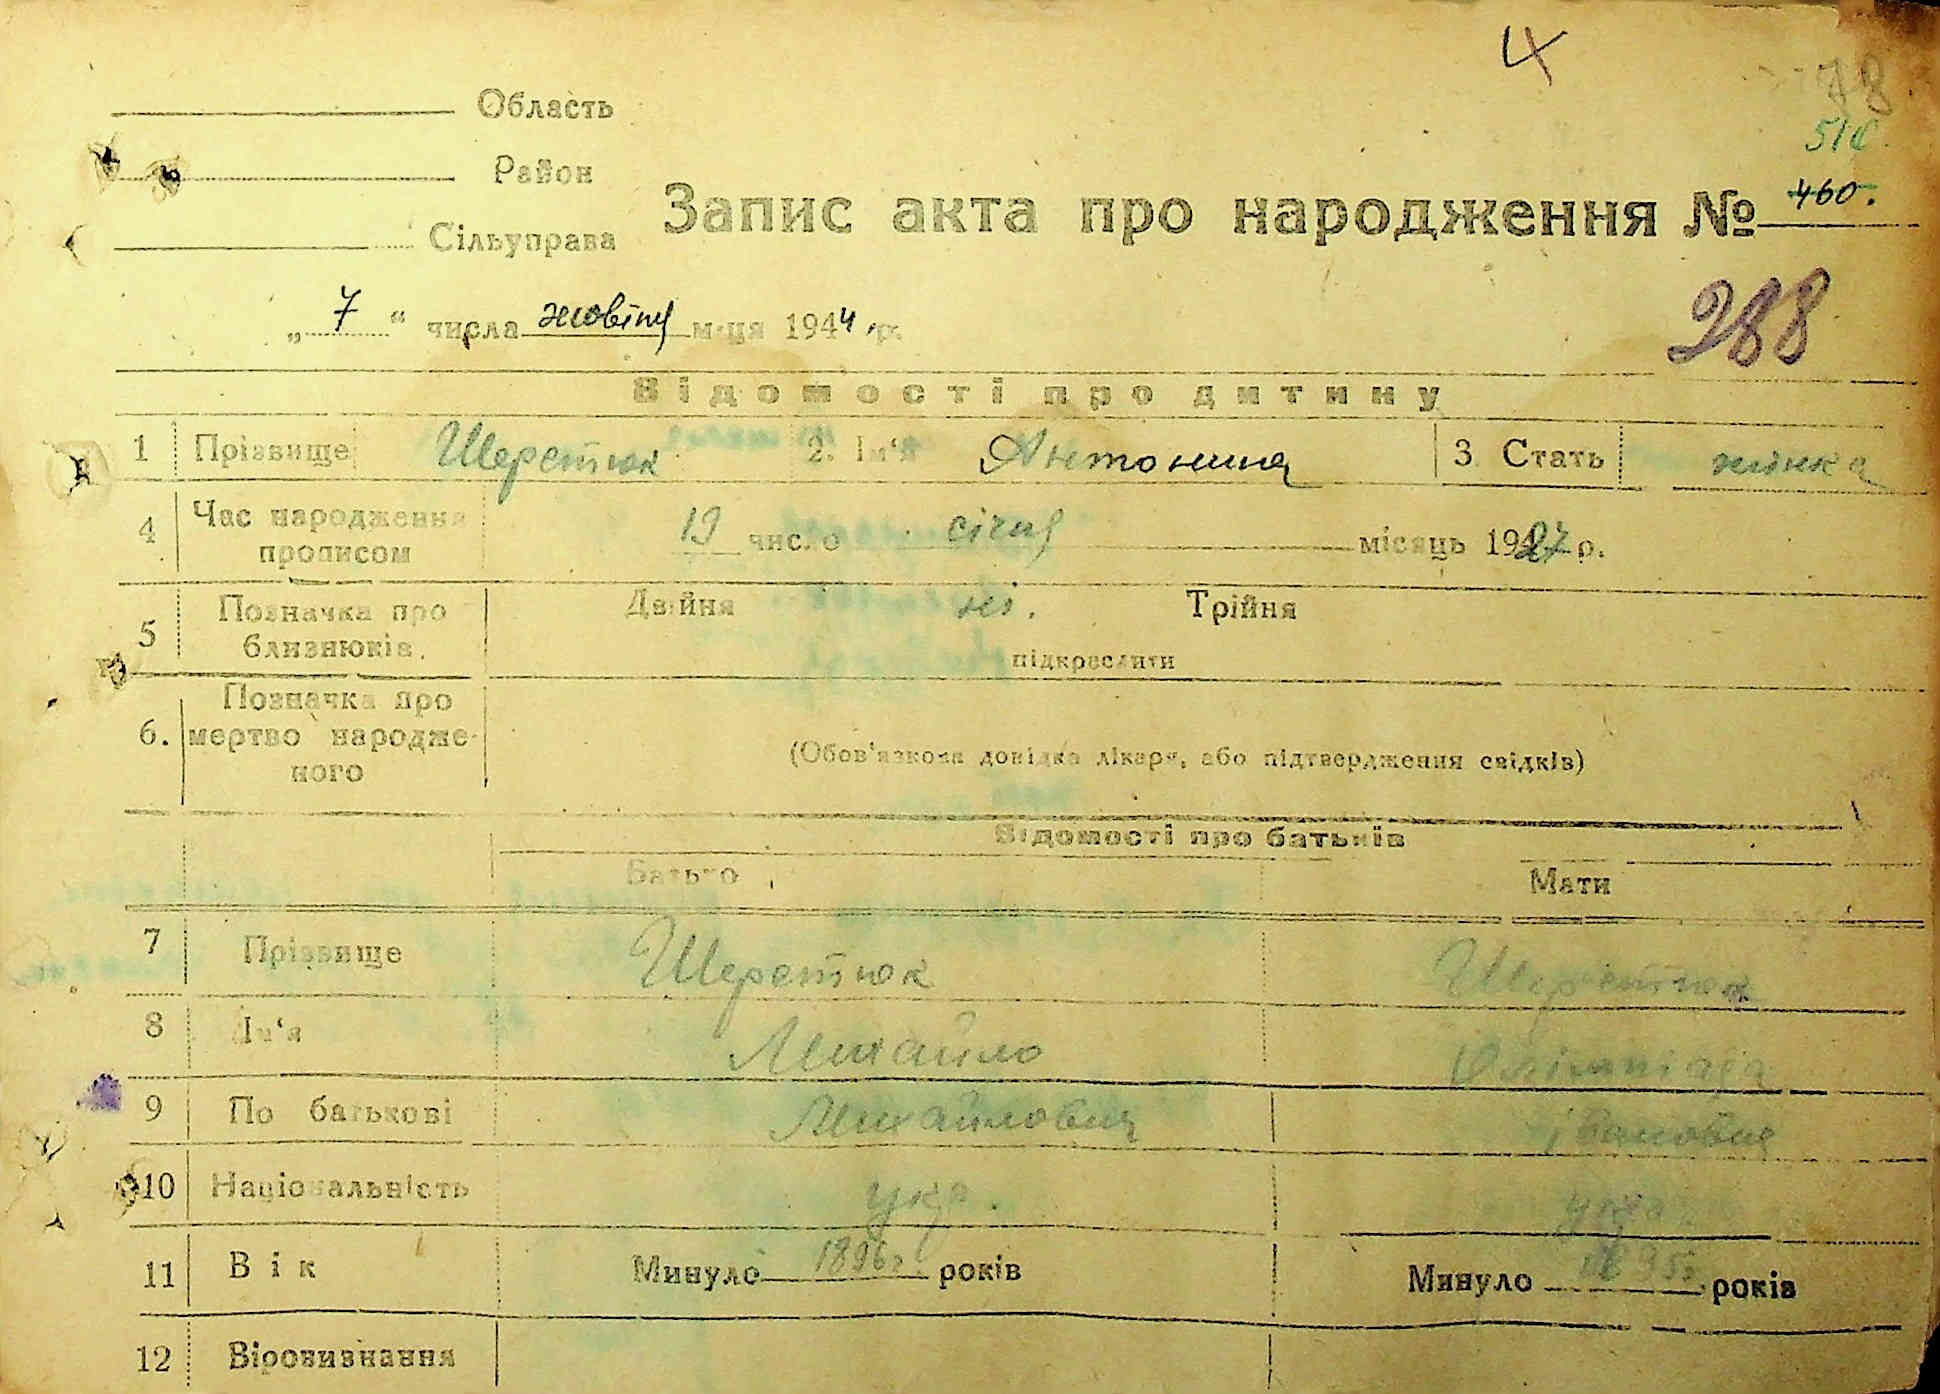 4
78
Область
518.
Район
Запис акта про народження № 460.
Сільуправа
288
„ 7 “ числа жовтня м-ця 1944 р.
Відомості про дитину
1 Прізвище Шеретюк 2. Ім‘я Антонина 3 Стать жінка
4 Час народження прописом 19 число січня місяць 1927 р.
5 Позначка про близнюків. Двійня ні. Трійня
підкреслити
6. Позначка про мертво народженого
(Обов'язкова довідка лікаря, або підтвердження свідків)
Відомості про батьків
Батько Мати
7 Прізвище Шеретюк Шеретюк
8 Ім‘я Михайло Олімпіада
9 По батькові Михайлович Івановна
10 Національність укр. укр.
11 Вік Минуло 1896 г. років Минуло 1895 г. років
12 Віровизнання